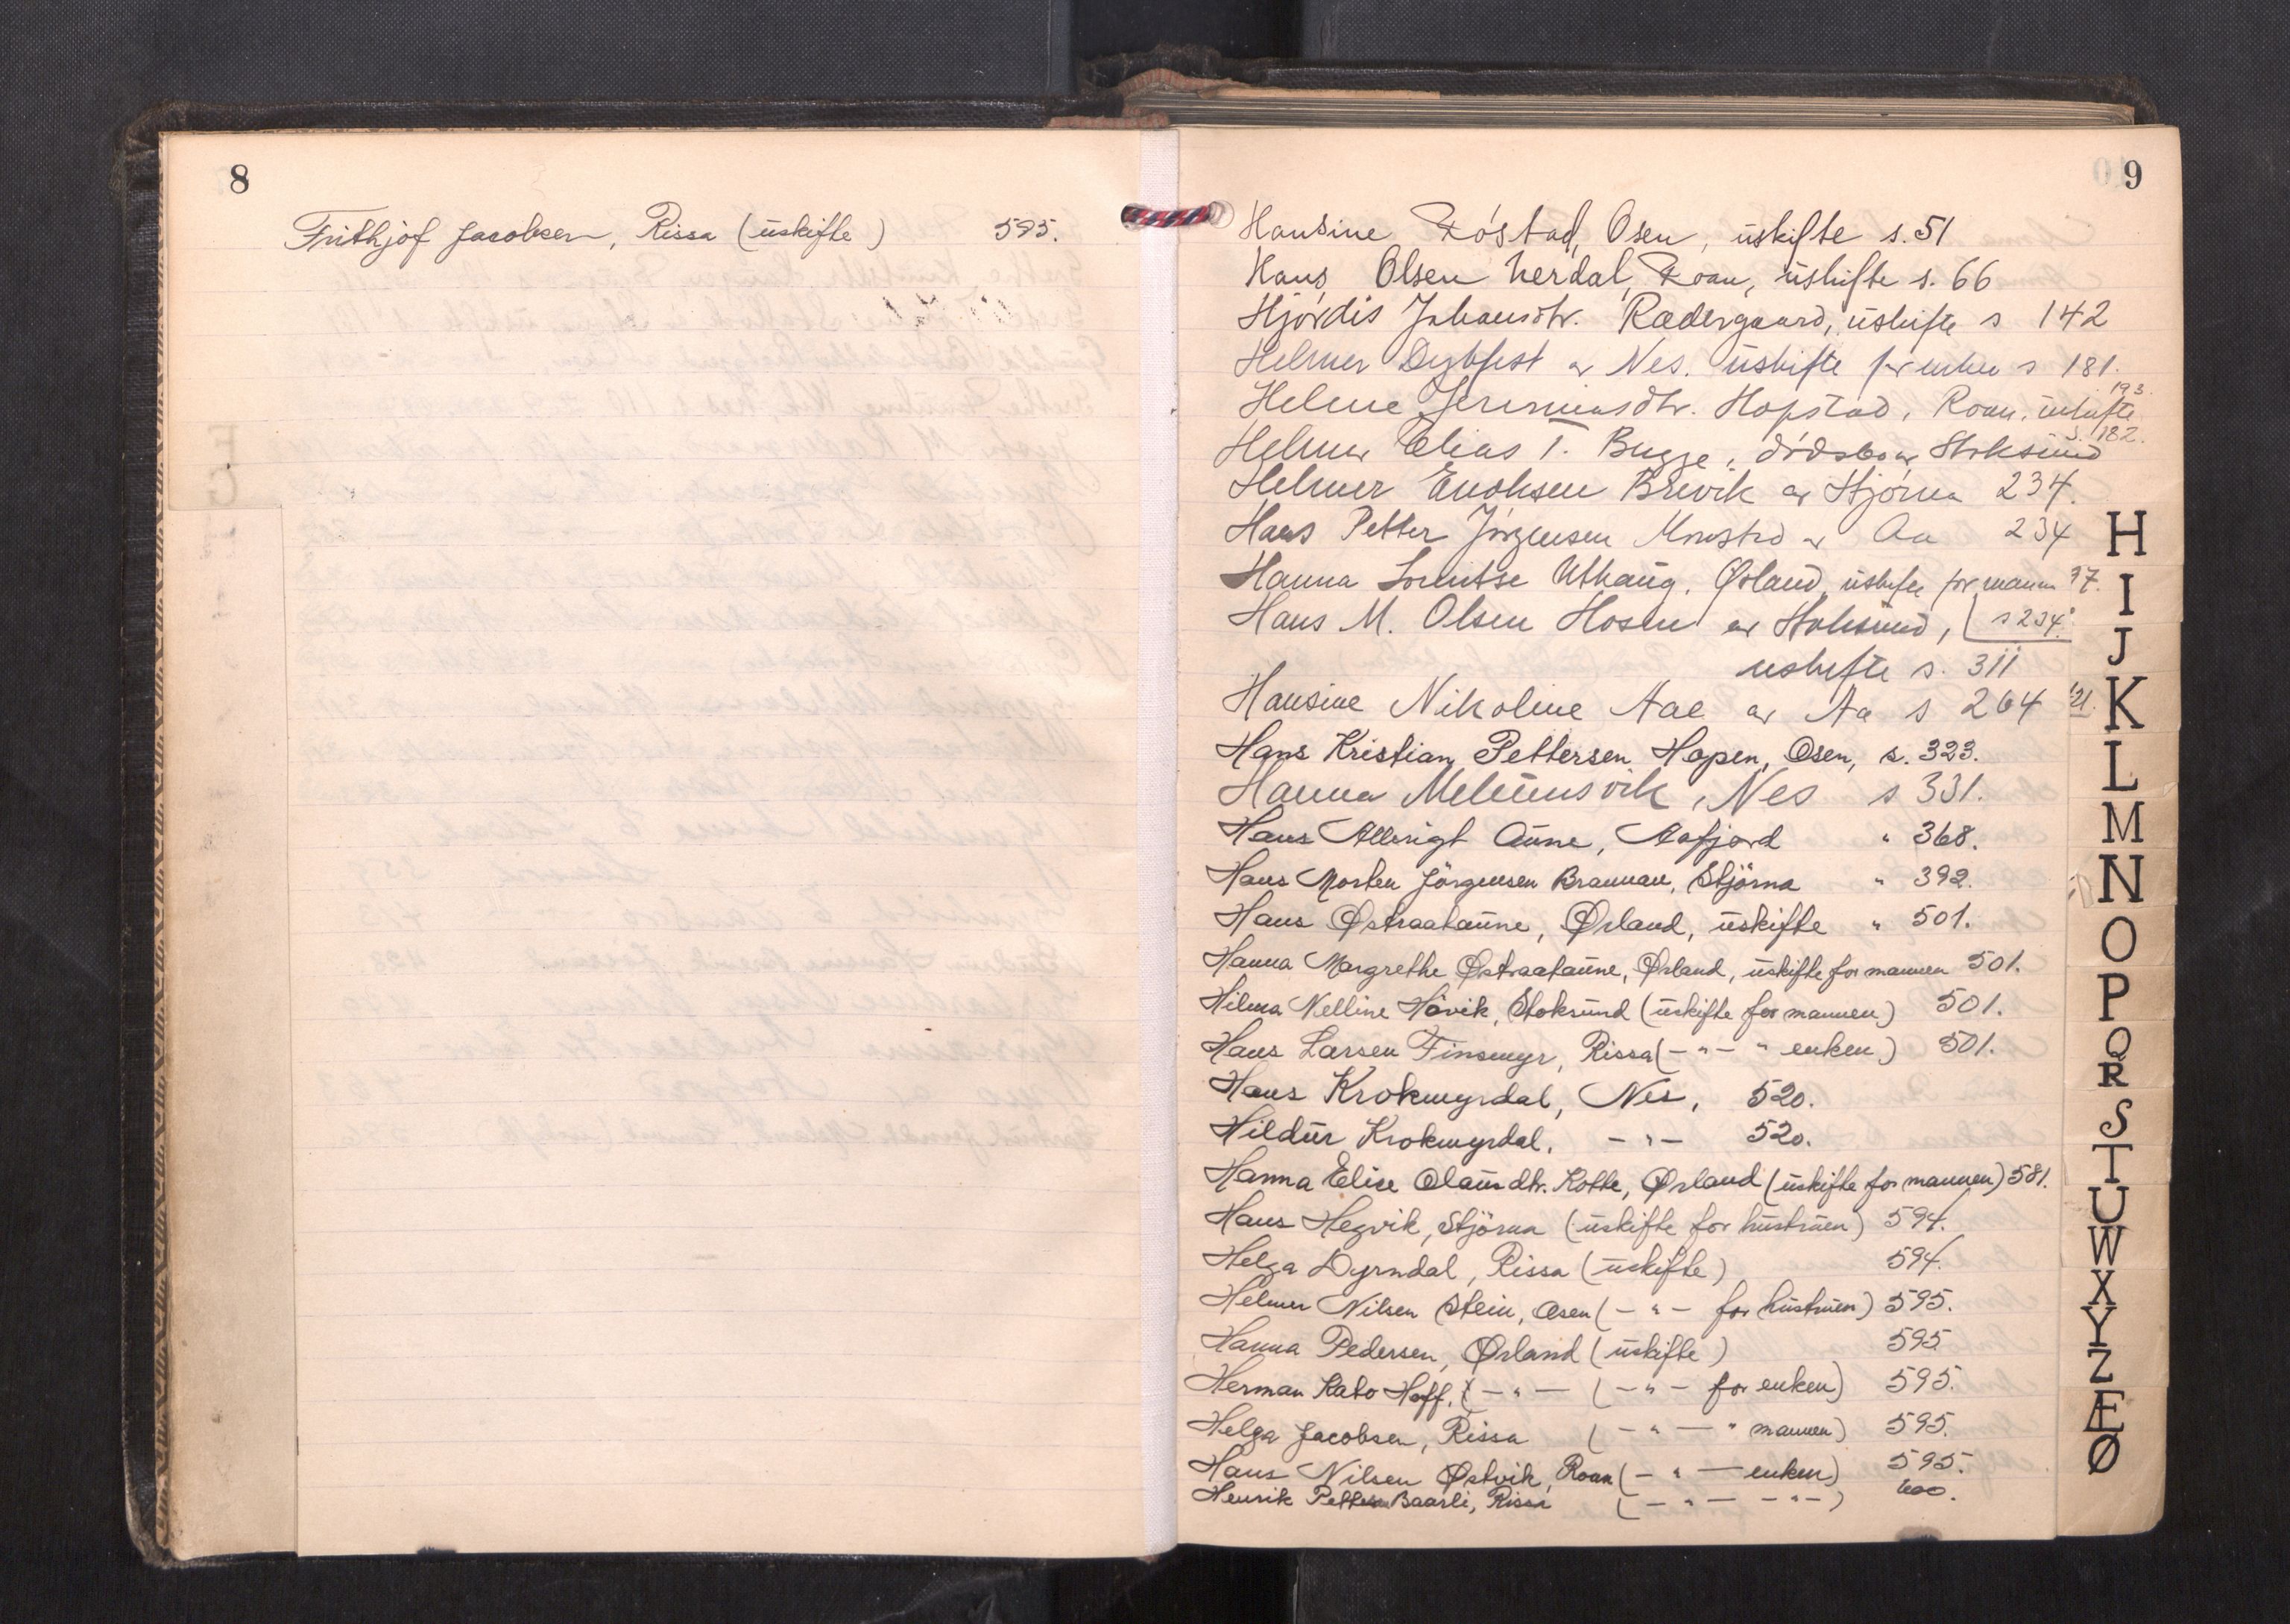 8
Frithjof Jacobsen, Rissa (uskifte) 595.
9
Hansine Røstad, Osen, uskifte s. 51
Hans Olsen Nerdal, Roan, uskifte s. 66
Hjørdis Johansdtr. Rædergaard, uskifte s 142
Helmer Dybfest av Nes. uskifte for enken s 181.
193.
Helene Jeremiasdtr. Hopstad, Roan, uskifte
s. 182.
Helmer Elias T. Bugge, dødsbo av Stoksund
Helmer Enoksen Brevik av Stjørna 234.
Hans Petter Jørgensen Monstad av Aa 234
Hanna Lorentse Uthaug, Ørland, uskifte for mannen 97.
Hans M. Olsen Hosen av Stoksund, s 234.
uskifte s. 311
Hansine Nikoline Aae av Aa s 264 321.
Hans Kristian Pettersen Hopen, Osen, s. 323.
Hanna Melumsvik, Nes s 331.
Hans Albrigt Aune, Aafjord " 368.
Hans Morten Jörgensen Brannan, Stjörna " 392.
Hans Østraataune, Ørland, uskifte " 501.
Hanna Margrethe Østraataune, Ørland, uskifte for mannen 501.
Hilma Nelline Hövik, Stoksund (uskifte for mannen) 501.
Hans Larsen Finsmyr, Rissa (-"- " enken) 501.
Hans Krokmyrdal, Nes, 520.
Hildur Krokmyrdal, -"- 520.
Hanna Elise Olausdtr. Kotte, Ørland (uskifte for mannen) 581.
Hans Hegvik, Stjörna (uskifte for hustruen) 594.
Helga Dyrndal, Rissa (uskifte) 594.
Helmer Nilsen Stein, Osen (-"- for hustruen) 595.
Hanna Pedersen, Ørland (uskifte) 595
Herman Kato Hoff, (-"- (-"- for enken) 595.
Helga Jacobsen, Rissa (-"- " mannen) 595.
Hans Nilsen Østvik, Roan (-"- enken) 595.
Henrik Petters Baarli, Rissa (-"- -"-) 600.
H
I
J
K
L
M
N
O
P
Q
R
S
T
U
W
X
Y
Z
Æ
Ø